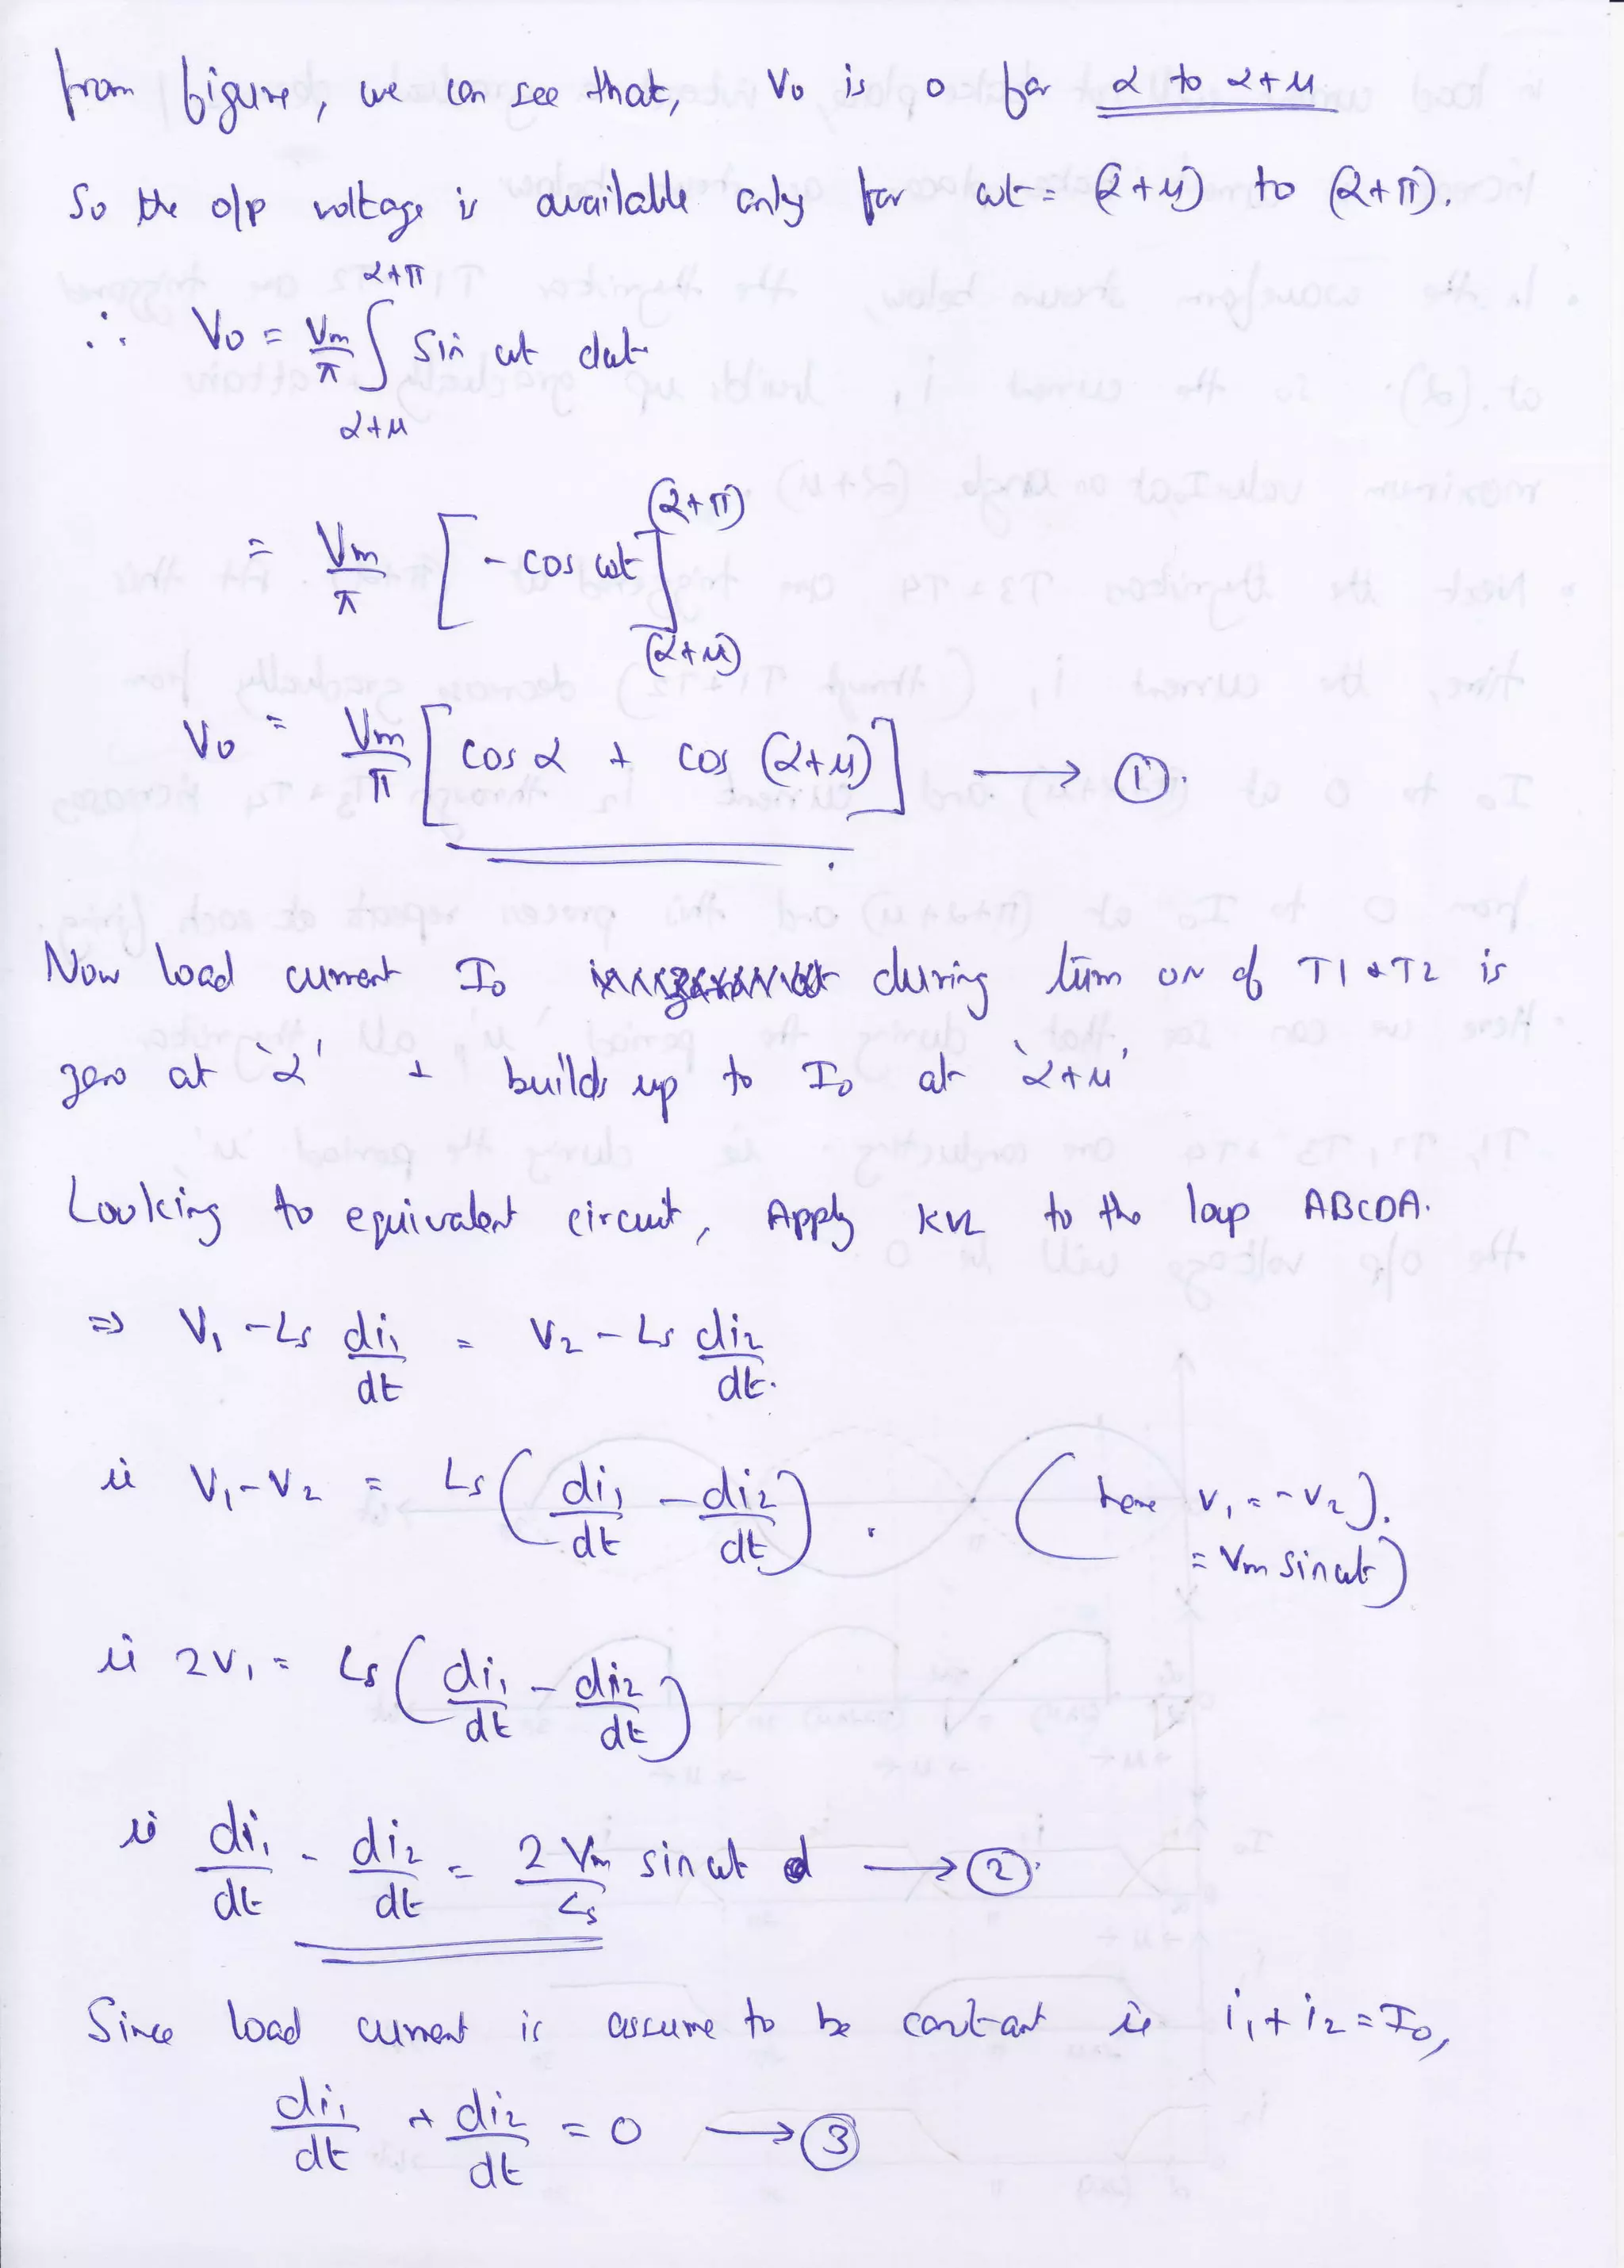 from figure, we can see that, V₀ is 0 for α to α+μ
So the o/p voltage is available only for ωt = (α+μ) to (α+π).
∴ V₀ = Vm/π ∫_{α+μ}^{α+π} Sin ωt dωt
= Vm/π [- cos ωt]_{(α+μ)}^{(α+π)}
V₀ = Vm/π [cos α + cos (α+μ)] → ①.
Now load current I₀ during turn on of T1 & T2 is
zero at 'α' & builds up to I₀ at 'α+μ'
Looking to equivalent circuit, Apply KVL to the loop ABCDA.
⇒ V₁ - Ls di₁/dt = V₂ - Ls di₂/dt.
ie V₁ - V₂ = Ls (di₁/dt - di₂/dt). (here V₁ = -V₂).
= Vm sin ωt)
ie 2V₁ = Ls (di₁/dt - di₂/dt)
ie di₁/dt - di₂/dt = 2 Vm/Ls sin ωt → ②.
Since load current is assume to be constant ie i₁ + i₂ = I₀,
di₁/dt + di₂/dt = 0 → ③